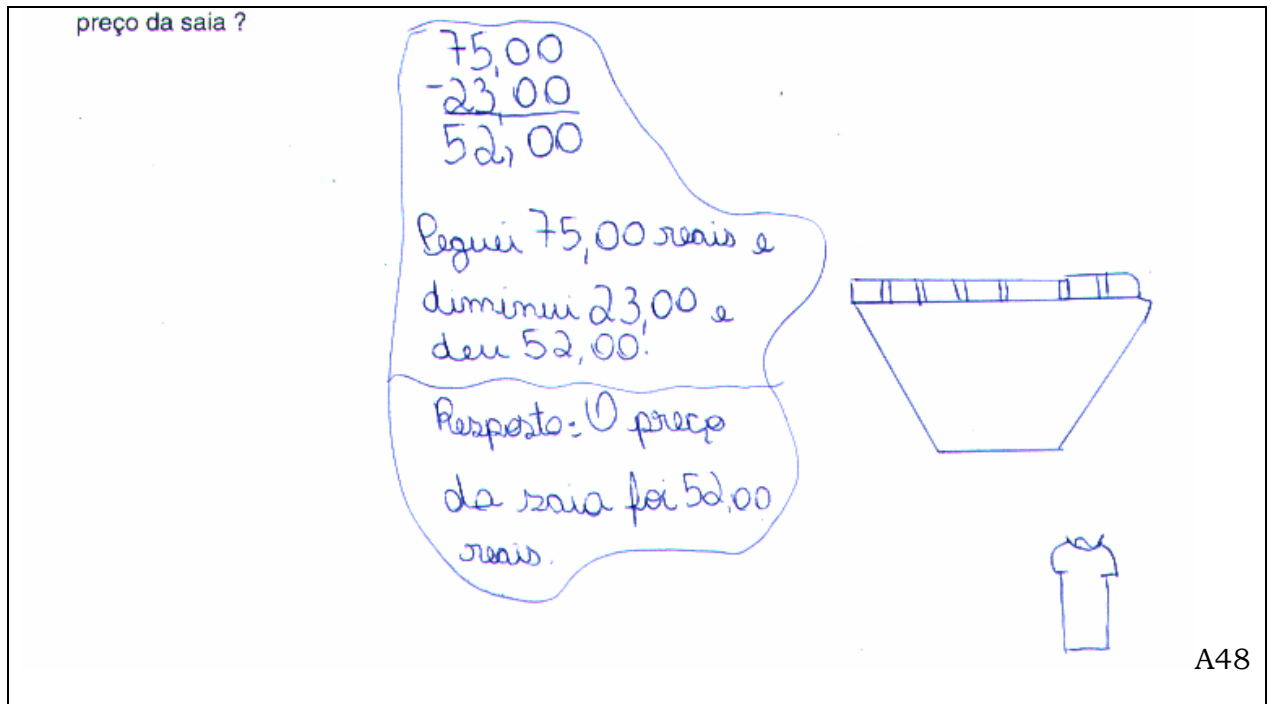 preço da saia ?
75,00
-23,00
52,00
Peguei 75,00 reais e
diminui 23,00 e
deu 52,00.
Resposta: O preço
da saia foi 52,00
reais.
A48